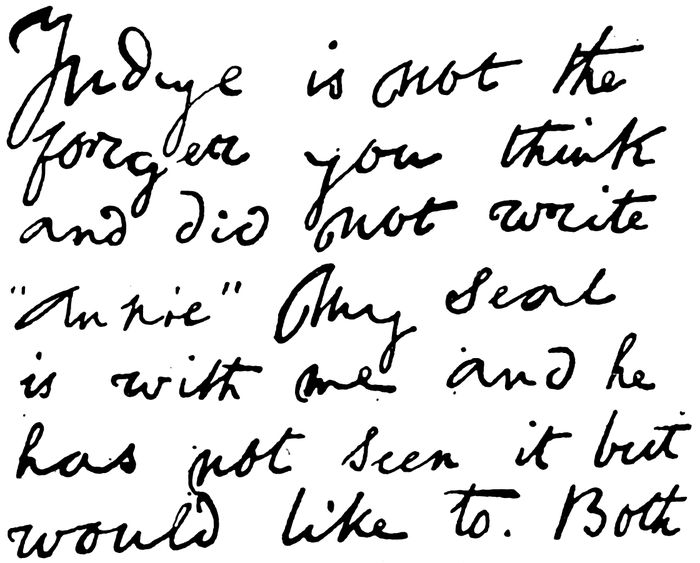 Judge is not the
forger you think
and did not write
"Annie" My seal
is with me and he
has not seen it but
would like to. Both